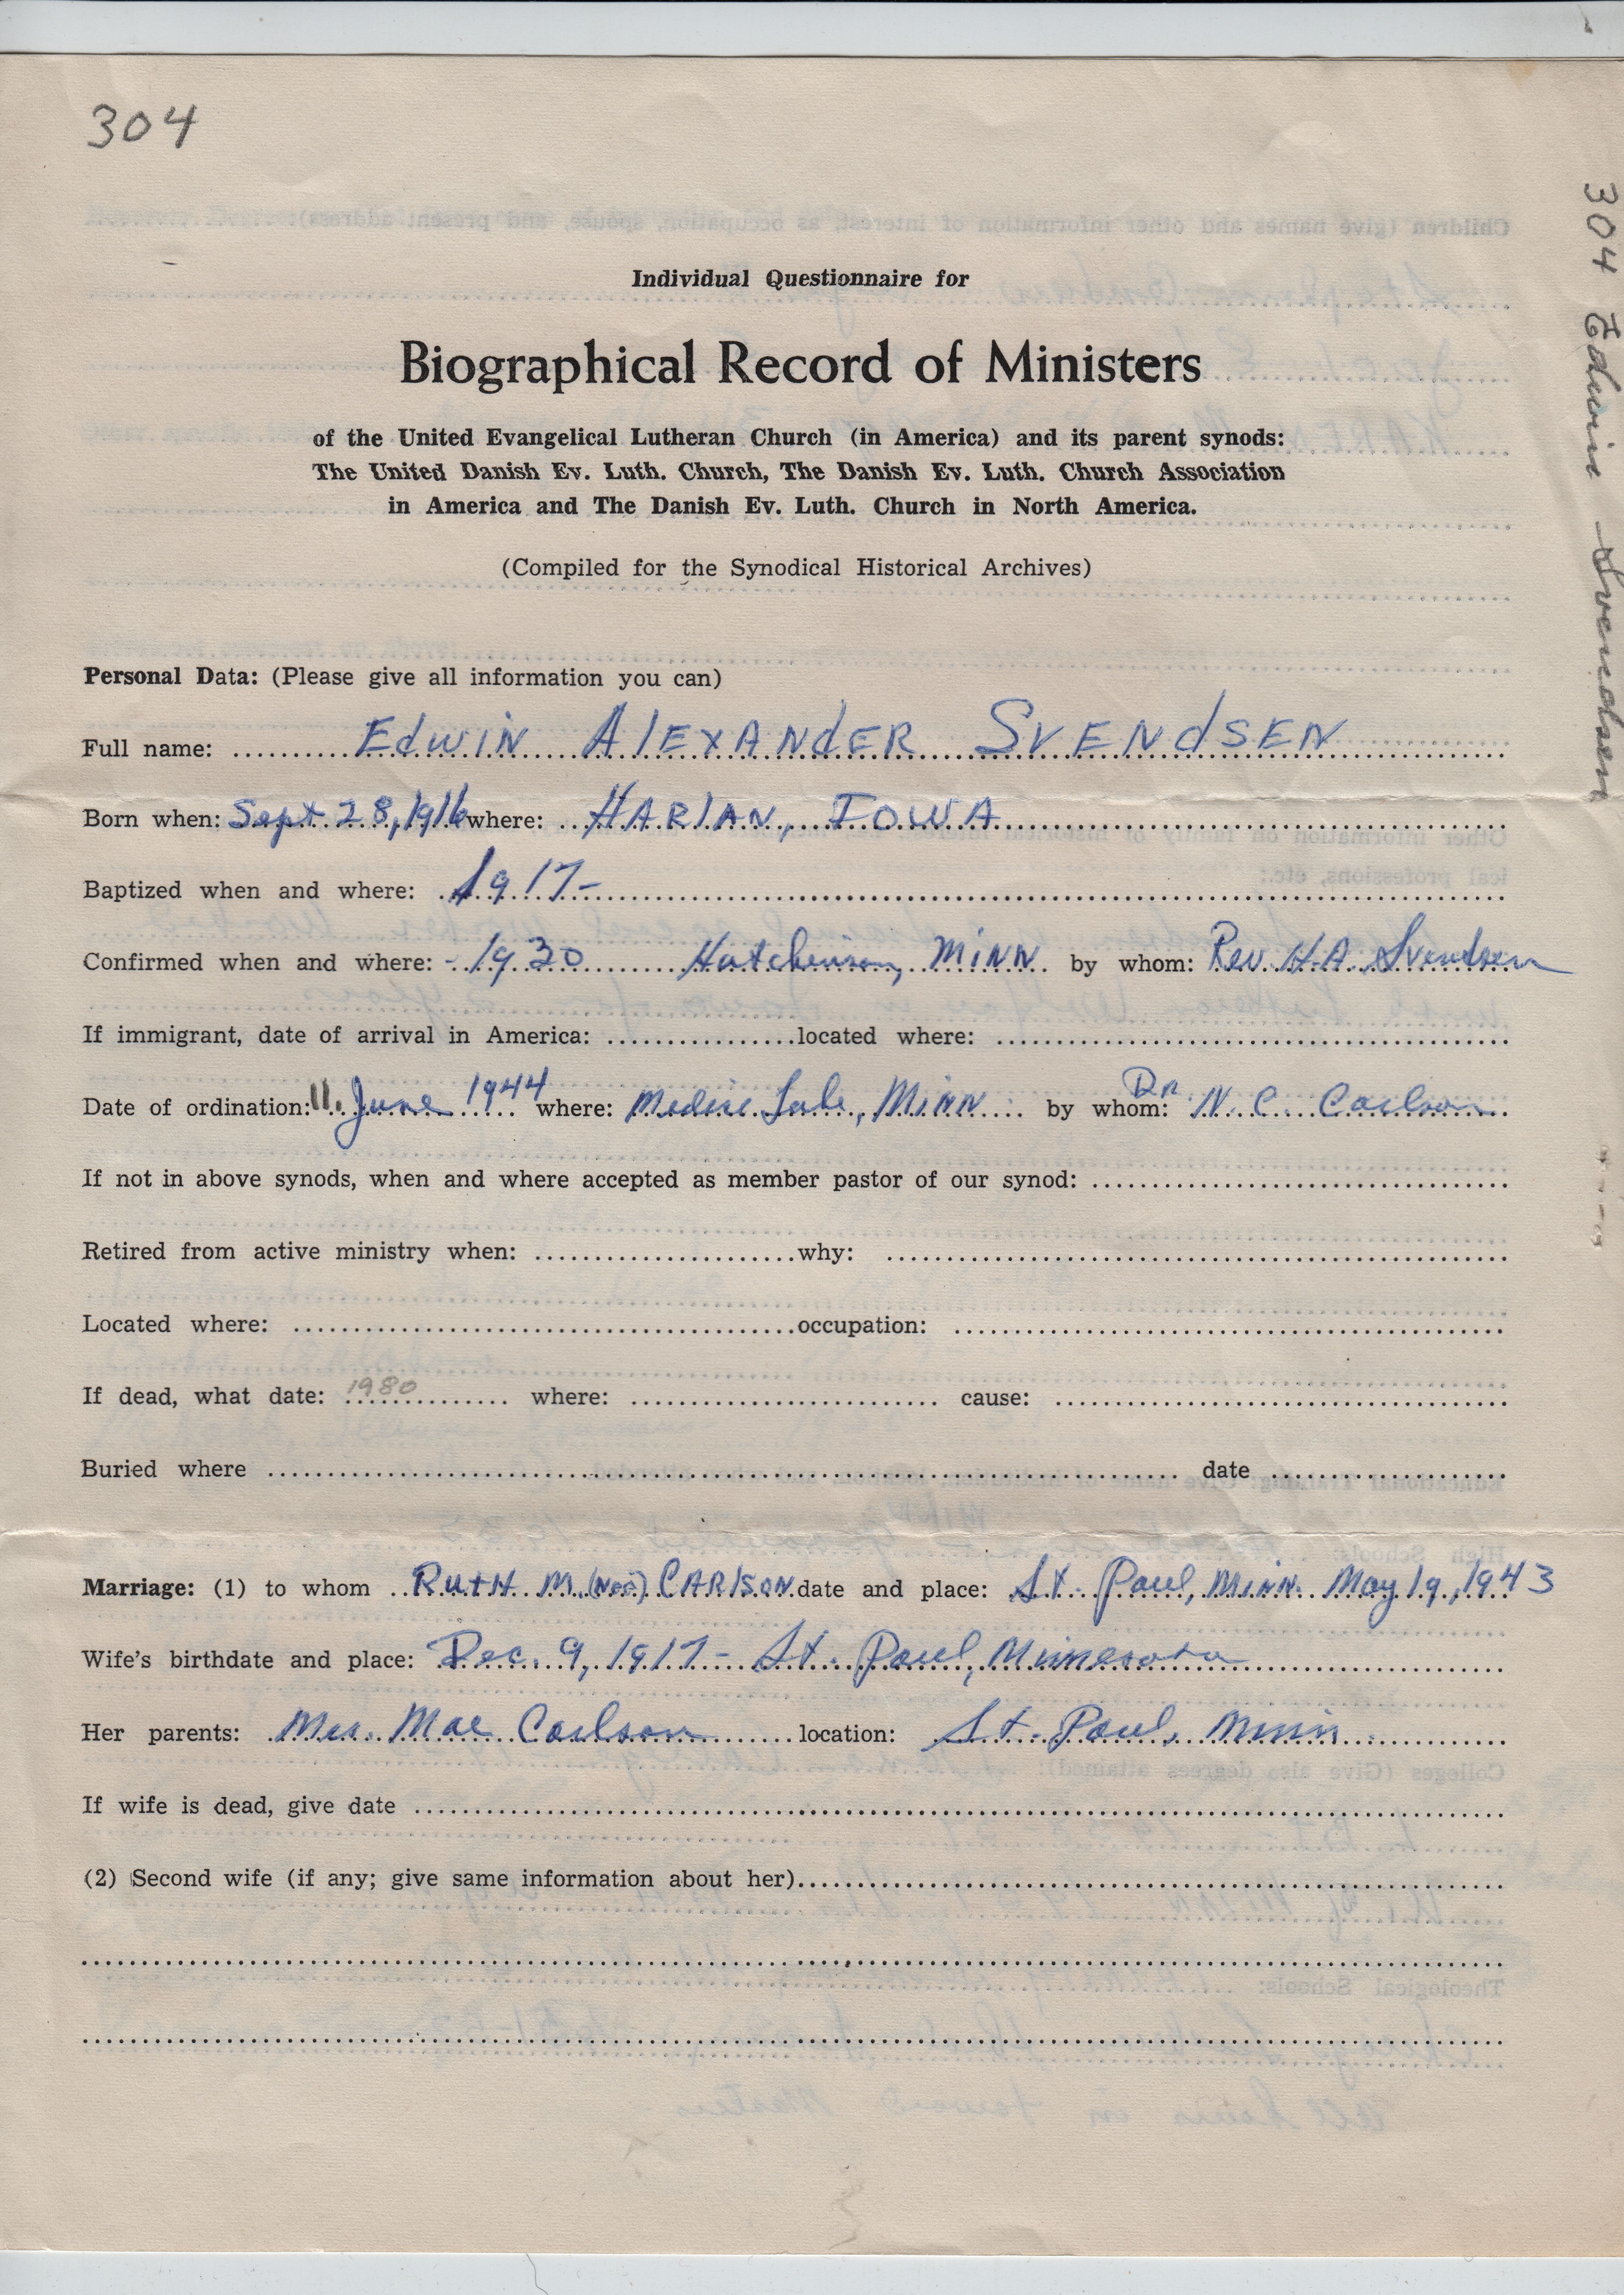 304
304 Edwin Svendsen
Individual Questionnaire for
Biographical Record of Ministers
of the United Evangelical Lutheran Church (in America) and its parent synods:
The United Danish Ev. Luth. Church, The Danish Ev. Luth. Church Association
in America and The Danish Ev. Luth. Church in North America.
(Compiled for the Synodical Historical Archives)
Personal Data: (Please give all information you can)
Full name: Edwin Alexander Svendsen
Born when: Sept 28, 1916 where: Harlan, Iowa
Baptized when and where: 1917-
Confirmed when and where: - 1930 Hutchinson, Minn by whom: Rev. H.A. Svendsen
If immigrant, date of arrival in America: located where:
Date of ordination: 11. June 1944 where: Lake, Minn by whom: Dr. N. C. Carlson
If not in above synods, when and where accepted as member pastor of our synod:
Retired from active ministry when: why:
Located where: occupation:
If dead, what date: 1980 where: cause:
Buried where date
Marriage: (1) to whom Ruth M. (nee) Carlson date and place: St. Paul, Minn. May 19, 1943
Wife's birthdate and place: Dec. 9, 1917 - St. Paul, Minnesota
Her parents: Mrs. Mae Carlson location: St. Paul, Minn
If wife is dead, give date
(2) Second wife (if any; give same information about her)